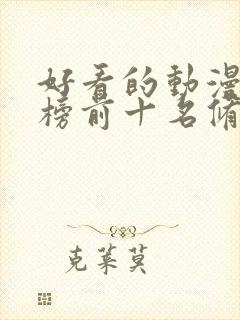 好看的動漫
榜前十名脩
克萊莫